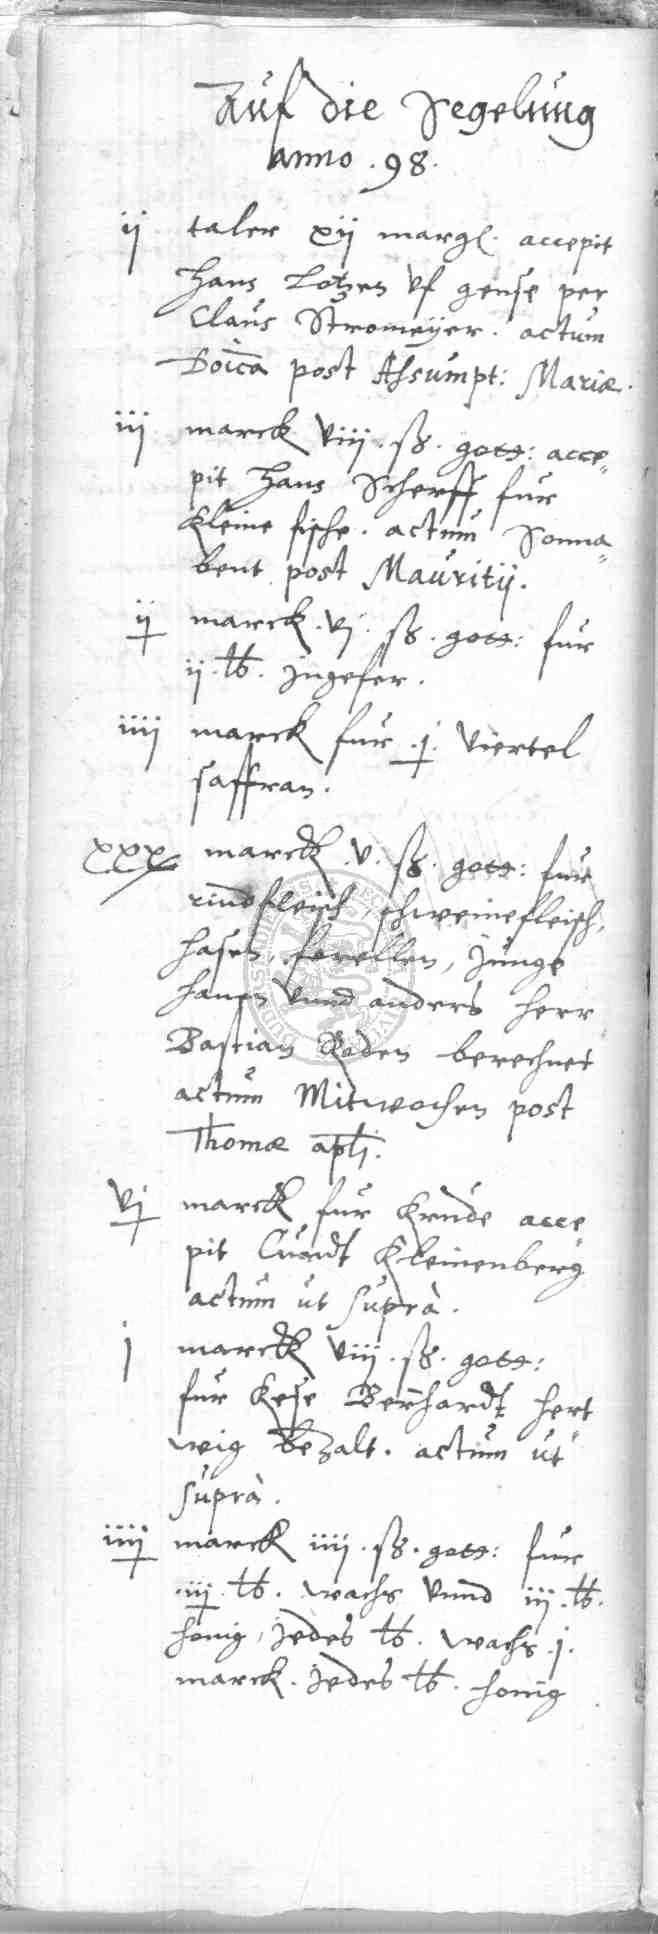 Auf die Segelung
anno . 98 .
ij taler xij margl. accepit
Hans Lotzen vf gense per
Claus Stromeyer . actum
Doica post Assumpt: Mariæ .
iij marck viij . ß . gott: acce„
pit Hans Scherff fur
kleine fische . actum Sonna„
bent post Mauritij .
ij marck . vj . ß . gott: fur
ij . lb . Jngefer .
iiij marck fur . j . viertel
saffran .
xxx marck . v . ß . gott: fur
rindfleisch, schweinefleisch,
hasen, forellen, Junge
hanen vnnd anders herr
Bastian Roden berechnet
actum Mitwochen post
Thomæ apli .
vj marck fur krude acce
pit Curdt Kleinenberg
actum ut suprà .
j marck viij . ß . gott:
fur kese Bernhardt hert
wig bezalt . actum ut
suprà .
iiij marck iiij . ß . gott: fur
iij . lb . wachs vnnd iij . lb .
honig, Jedes lb . wachs . j .
marck . Jedes lb . honig